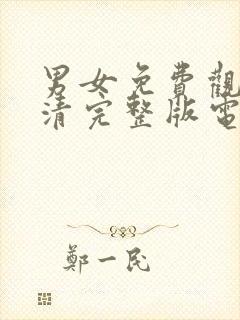 男女免費觀
清完整版電
鄭一民